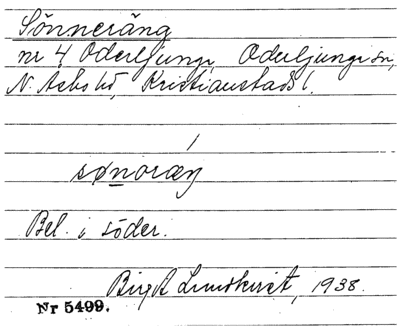 Sönneräng
nr 4 Oderljunga, Oderljunga sn,
N. Åsbo hd, Kristianstads l.
sønoræŋ
Bel. i söder.
Birgit Lundkvist, 1938.
Nr 5499.